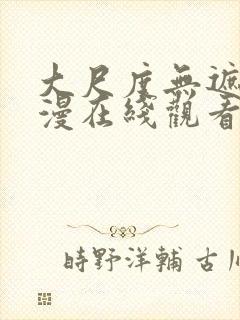 大尺度無遮
漫在綫觀看
時野洋輔 古川